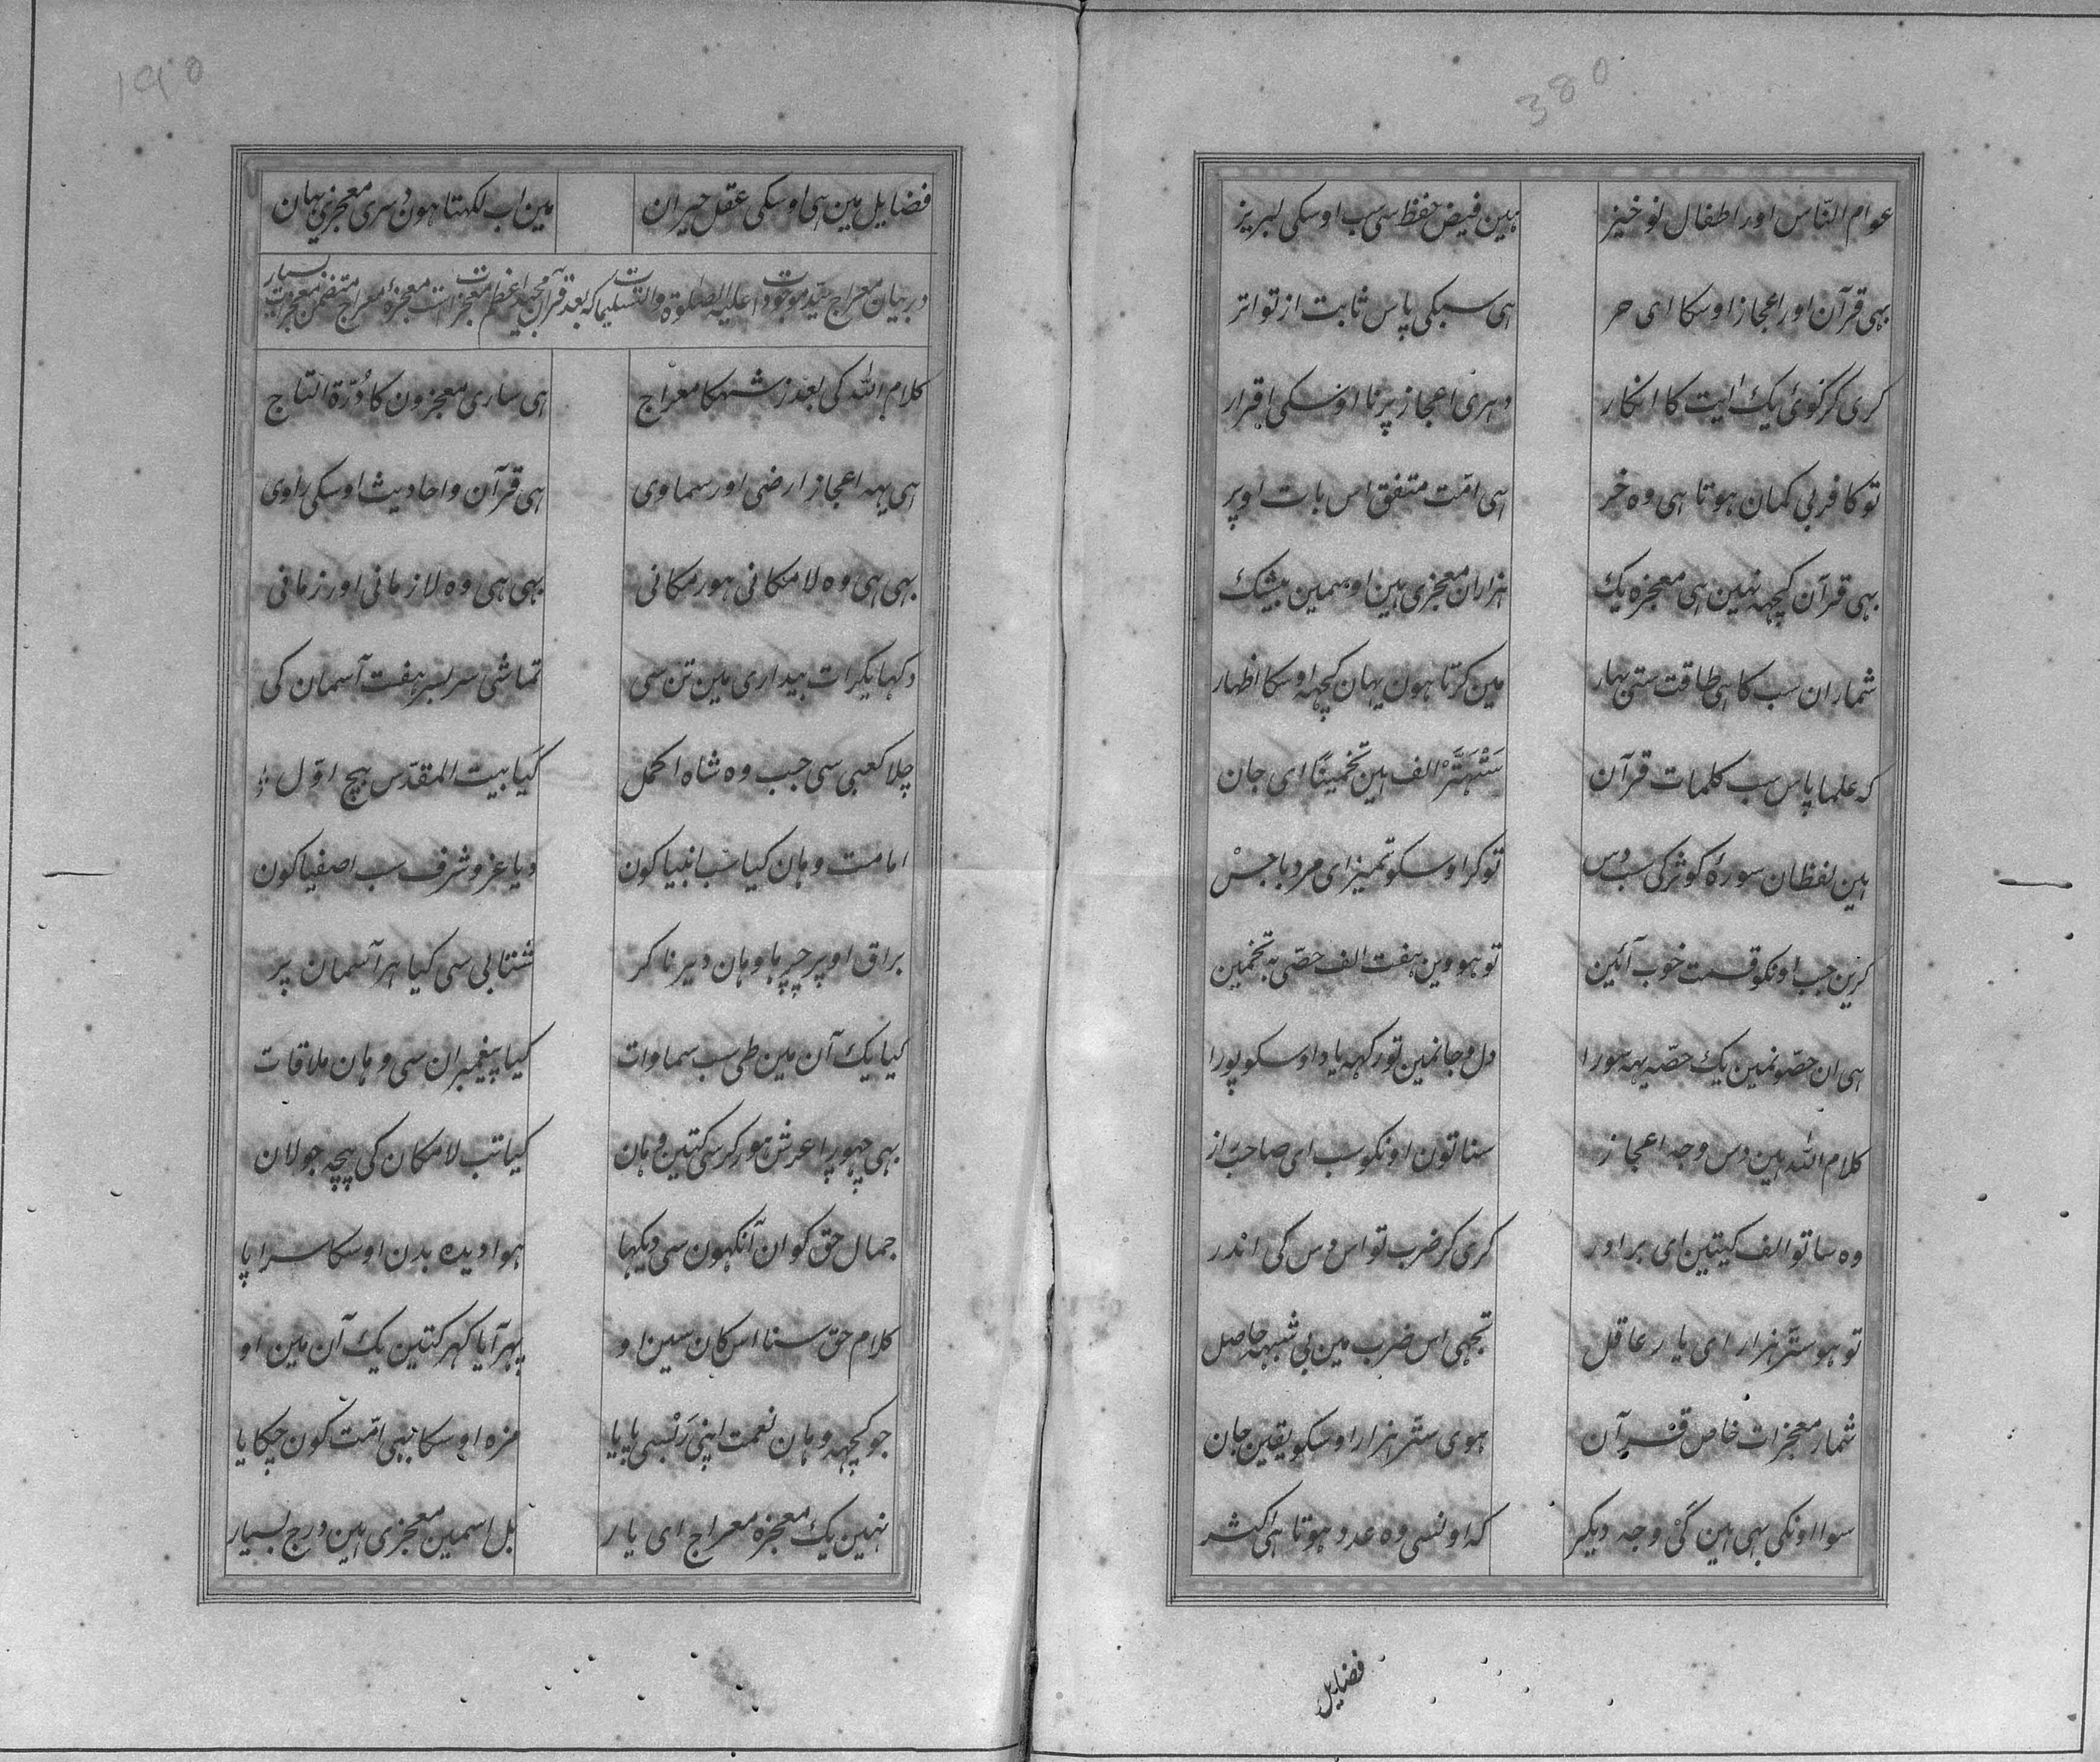 380
عوام النّاس اور اطفال نو خیز ہین فیض حفظ سی سب اوسکی لبریز
بہی قرآن اور اعجاز اوسکا ای حر ہی سبکی پاس ثابت از تواتر
کری گر کوئی یک آیت کا انکار دہری اعجاز پر نا اوسکی اقرار
تو کافر بی کمان ہوتا ہی وہ خر ہی امّت متفق اس بات اوپر
بہی قرآن کچہہ نہین ہی معجزہ یک ہزاران معجزی ہین اوسمین بیشک
شمار ان سب کا ہی طاقت ستی بہار مین کرتا ہون یہان کچہہ اوسکا اظہار
کہ علما پاس سب کلمات قرآن ستہتّر الف ہین تخمینًا ای جان
ہین لفظان سورۂ کوثر کی سب دس تو کر اوسکو تمیز ای مرد با جس
کرین جب اونکو قسمت خوب آئین تو ہووین ہفت الف حصّی بہ تخمین
ہی ان حصّونمین یک حصّہ یہہ سورا دل و جانمین تو رکہہ یاد اوسکو پورا
کلام اللہ ہین دس وجہ اعجاز سنا تون اونکو سب ای صاحب راز
وہ ساتو الف کیتین ای برادر کری کر ضرب تو اس دس کی اندر
تو ہو ستّر ہزار ای یار عاقل تجہی اس ضرب مین بی شبہہ حاصل
شمار معجزات خاص قرآن ہوی ستّر ہزار اوسکو یقین جان
سوا اونکی بہی ہین کئی وجہ دیگر کہ اونسی وہ عدد ہوتا ہی اکثر
فضایل
190
فضایل مین ہی اوسکی عقل حیران مین اب لکہتا ہون دسری معجزی یہان
در بیان معراج سیّد موجودات علیہ الصلوۃ والتسلیمات کہ بعد قرآن مجید اعظم معجزات است معجزۂ معراج متضمن معجزات بسیار
کلام اللہ کی بعد از شہکا معراج ہی ساری معجزون کا دُرّۃ التاج
ہی یہہ اعجاز ارضی اور سماوی ہی قرآن و احادیث اوسکی راوی
بہی ہی وہ لامکانی ہور مکانی بہی ہی وہ لازمانی اور زمانی
دکہا یکرات بیداری مین تن سی تماشی سربسر ہفت آسمان کی
چلا کعبی سی جب وہ شاہ اکمل کیا بیت المقدّس بیچ اوّل
امامت وہان کیا سب انبیا کون دیا عز و شرف سب اصفیا کون
براق اوپر چڑہا وہان دیر نا کر شتابی سی کیا ہر آسمان پر
کیا یک آن مین طی سب سماوات کیا پیغمبران سی وہان ملاقات
بہی چہوڑا عرش ہور کرسی کتین وہان کیا تب لامکان کی بیچہ جولان
جمال حق کو ان آنکہون سی دیکہا ہوا دیدہ بدن اوسکا سراپا
کلام حق سنا اس کان سین او پہر آیا کہر کتین یک آن مین او
جو کچہہ وہان نعمت اپنی رب سی پایا مزہ اوسکا بہی امّت کون چکایا
نہین یک معجزہ معراج ای یار بل اسمین معجزی ہین درج بسیار